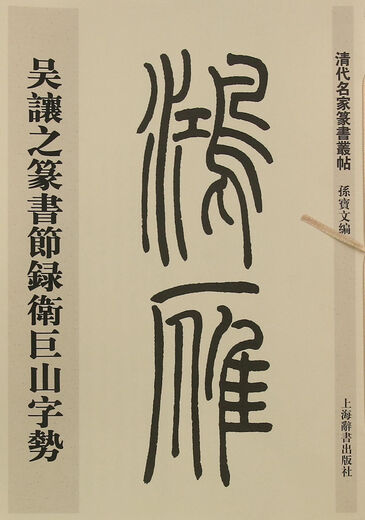 清代名家篆書叢帖
孫寶文编
上海辭書出版社
鴻雁
吴讓之篆書節録衛巨山字勢